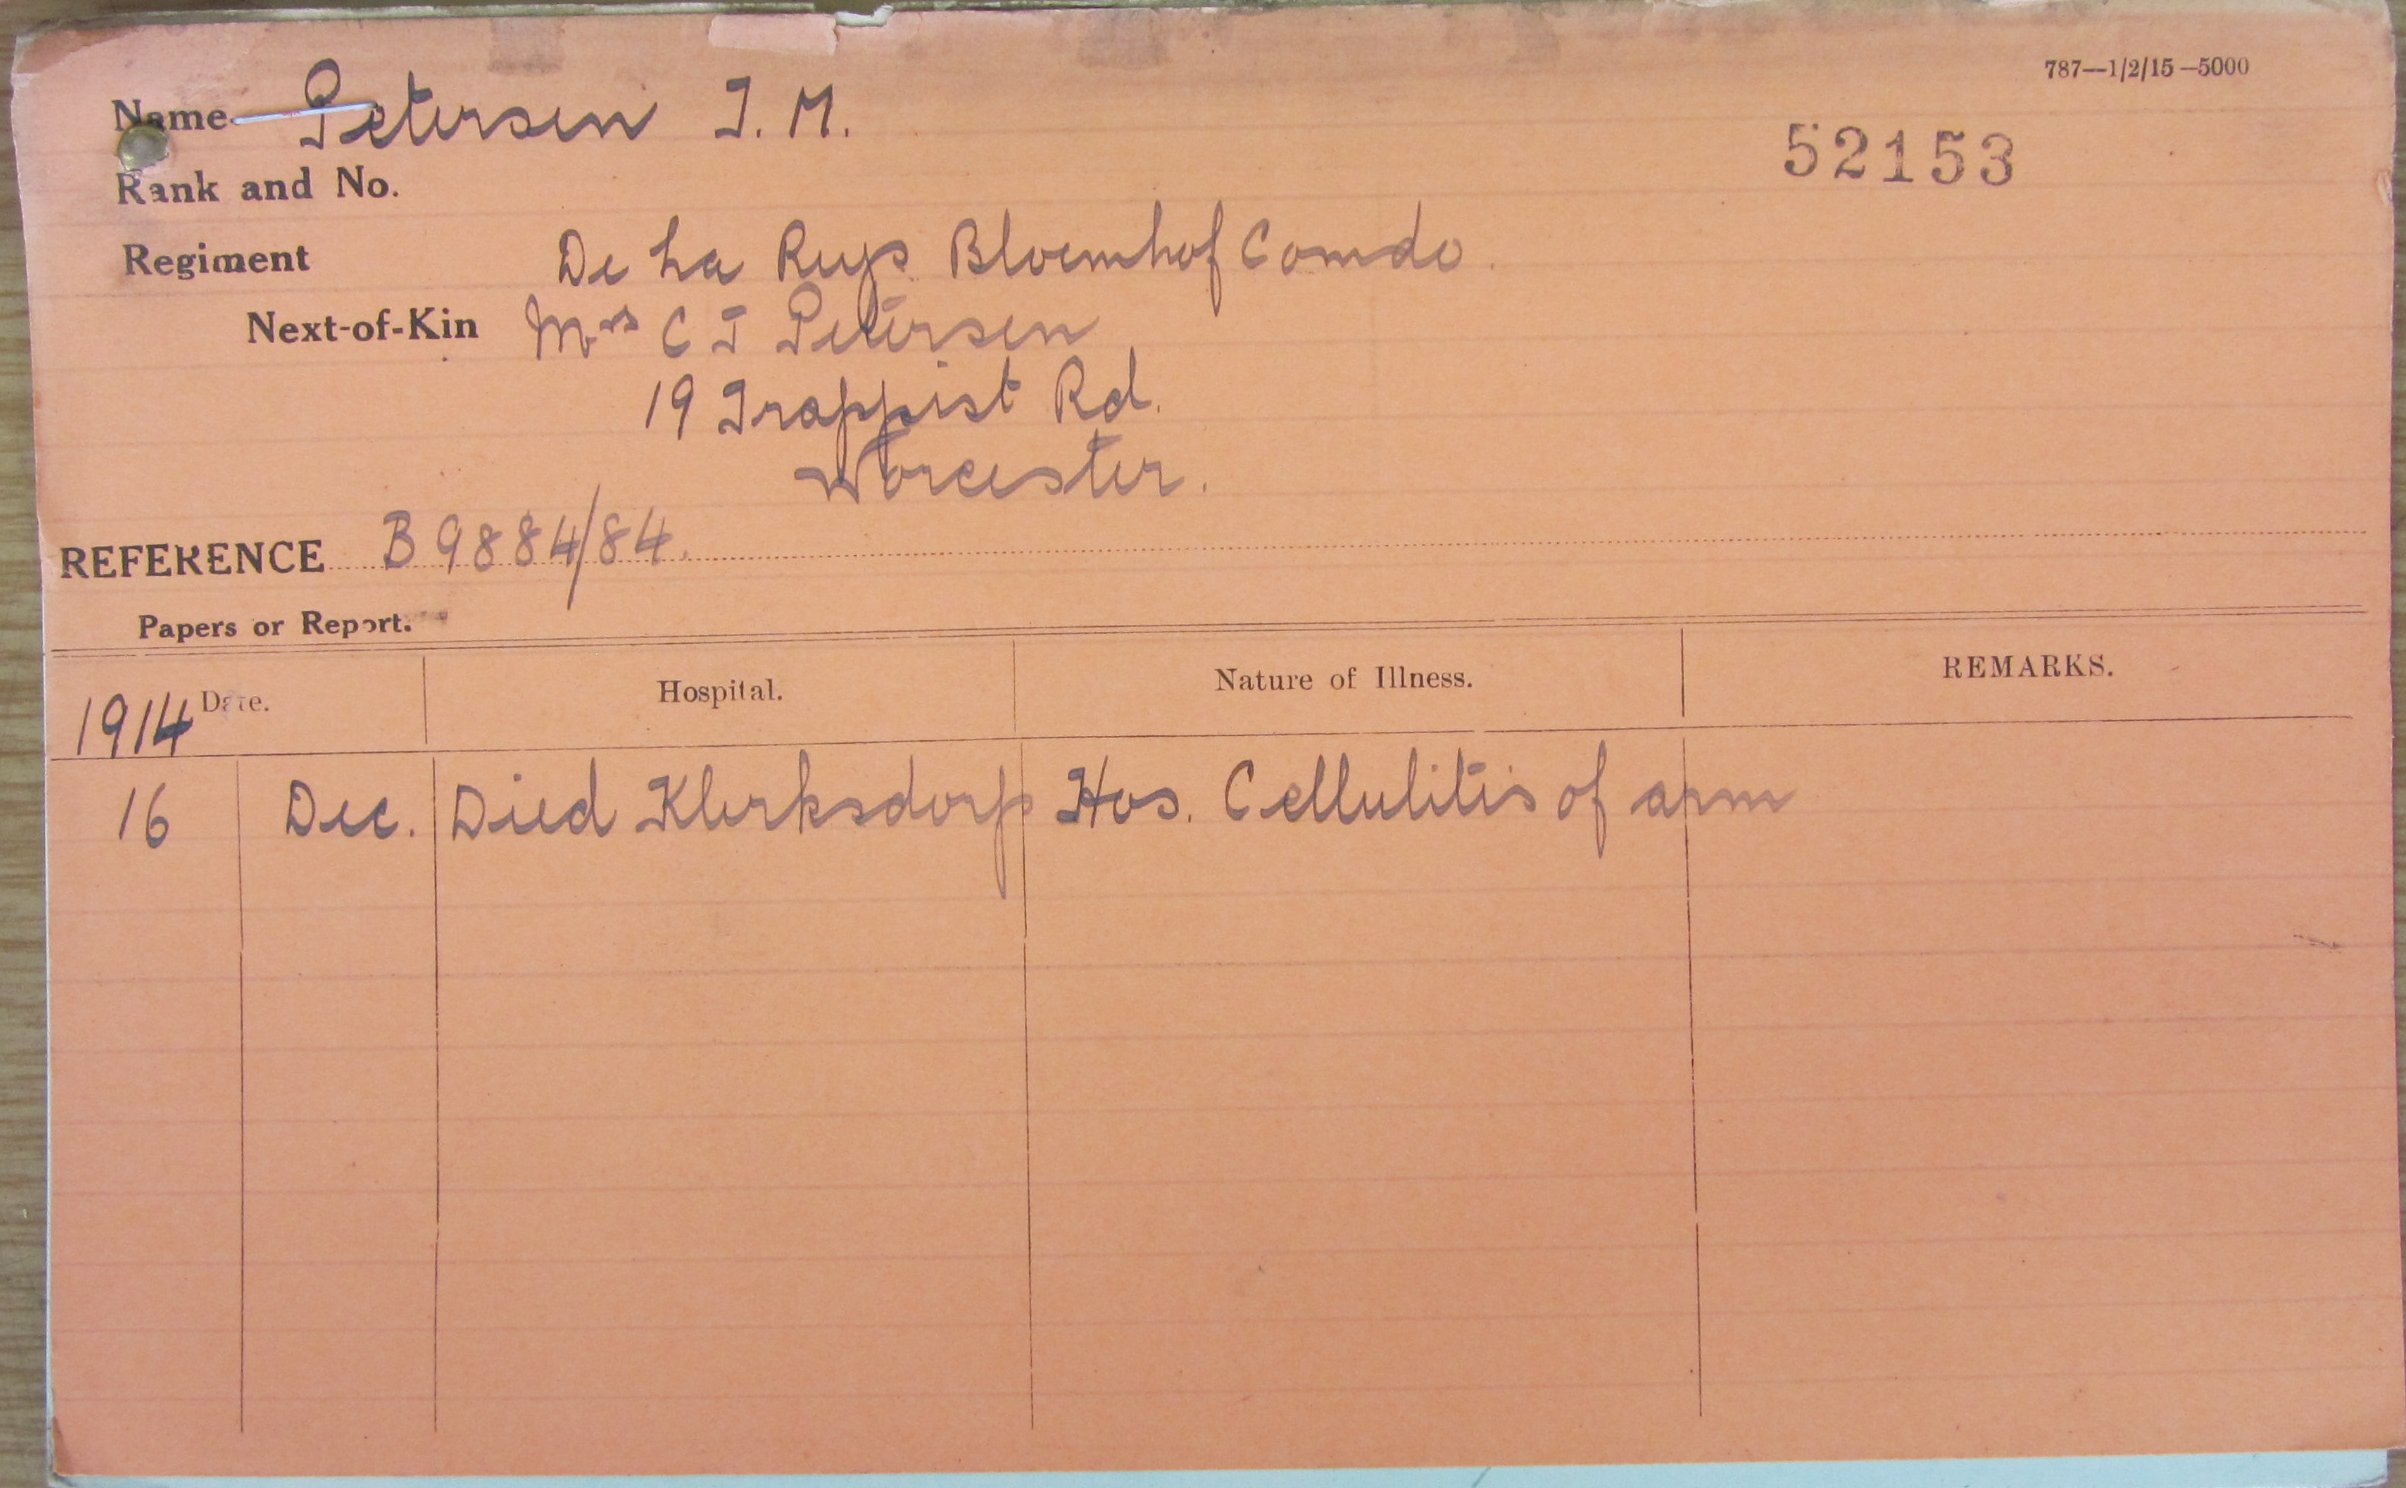 787—1/2/15—5000
Name Petersen J. M.
52153
Rank and No.
Regiment De La Reys Bloemhof Comdo.
Next-of-Kin Mrs C J Petersen
19 Trappist Rd.
Worcester.
REFERENCE B 9884/84.
Papers or Report.
1914 Date. Hospital. Nature of Illness. REMARKS.
16 Dec. Died Klerksdorp Hos. Cellulitis of arm